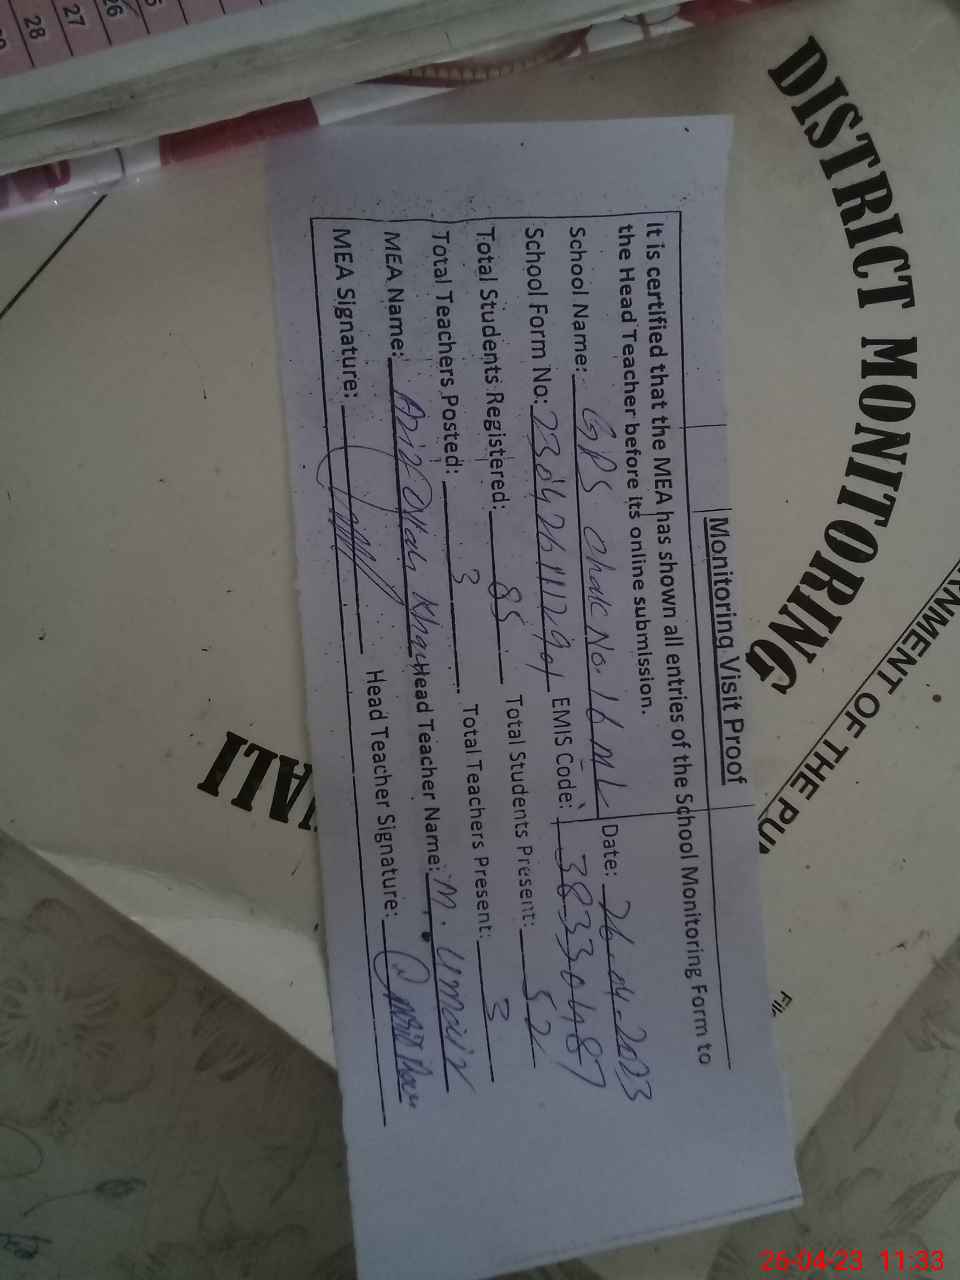 Monitoring Visit Proof
It is certified that the MEA has shown all entries of the School Monitoring Form to
the Head Teacher before its online submission.
School Name: GPS Chak No. 16 ML Date: 26-04-2023
School Form No: EMIS Code: 38330487
Total Students Registered: 85 Total Students Present: 52
Total Teachers Posted: 3 Total Teachers Present: 3
MEA Name: Khan Head Teacher Name: M. Umair
MEA Signature: Head Teacher Signature:
DISTRICT MONITORING
RNMENT OF THE PU
ALI
26
27
28
26-04-23 11:33